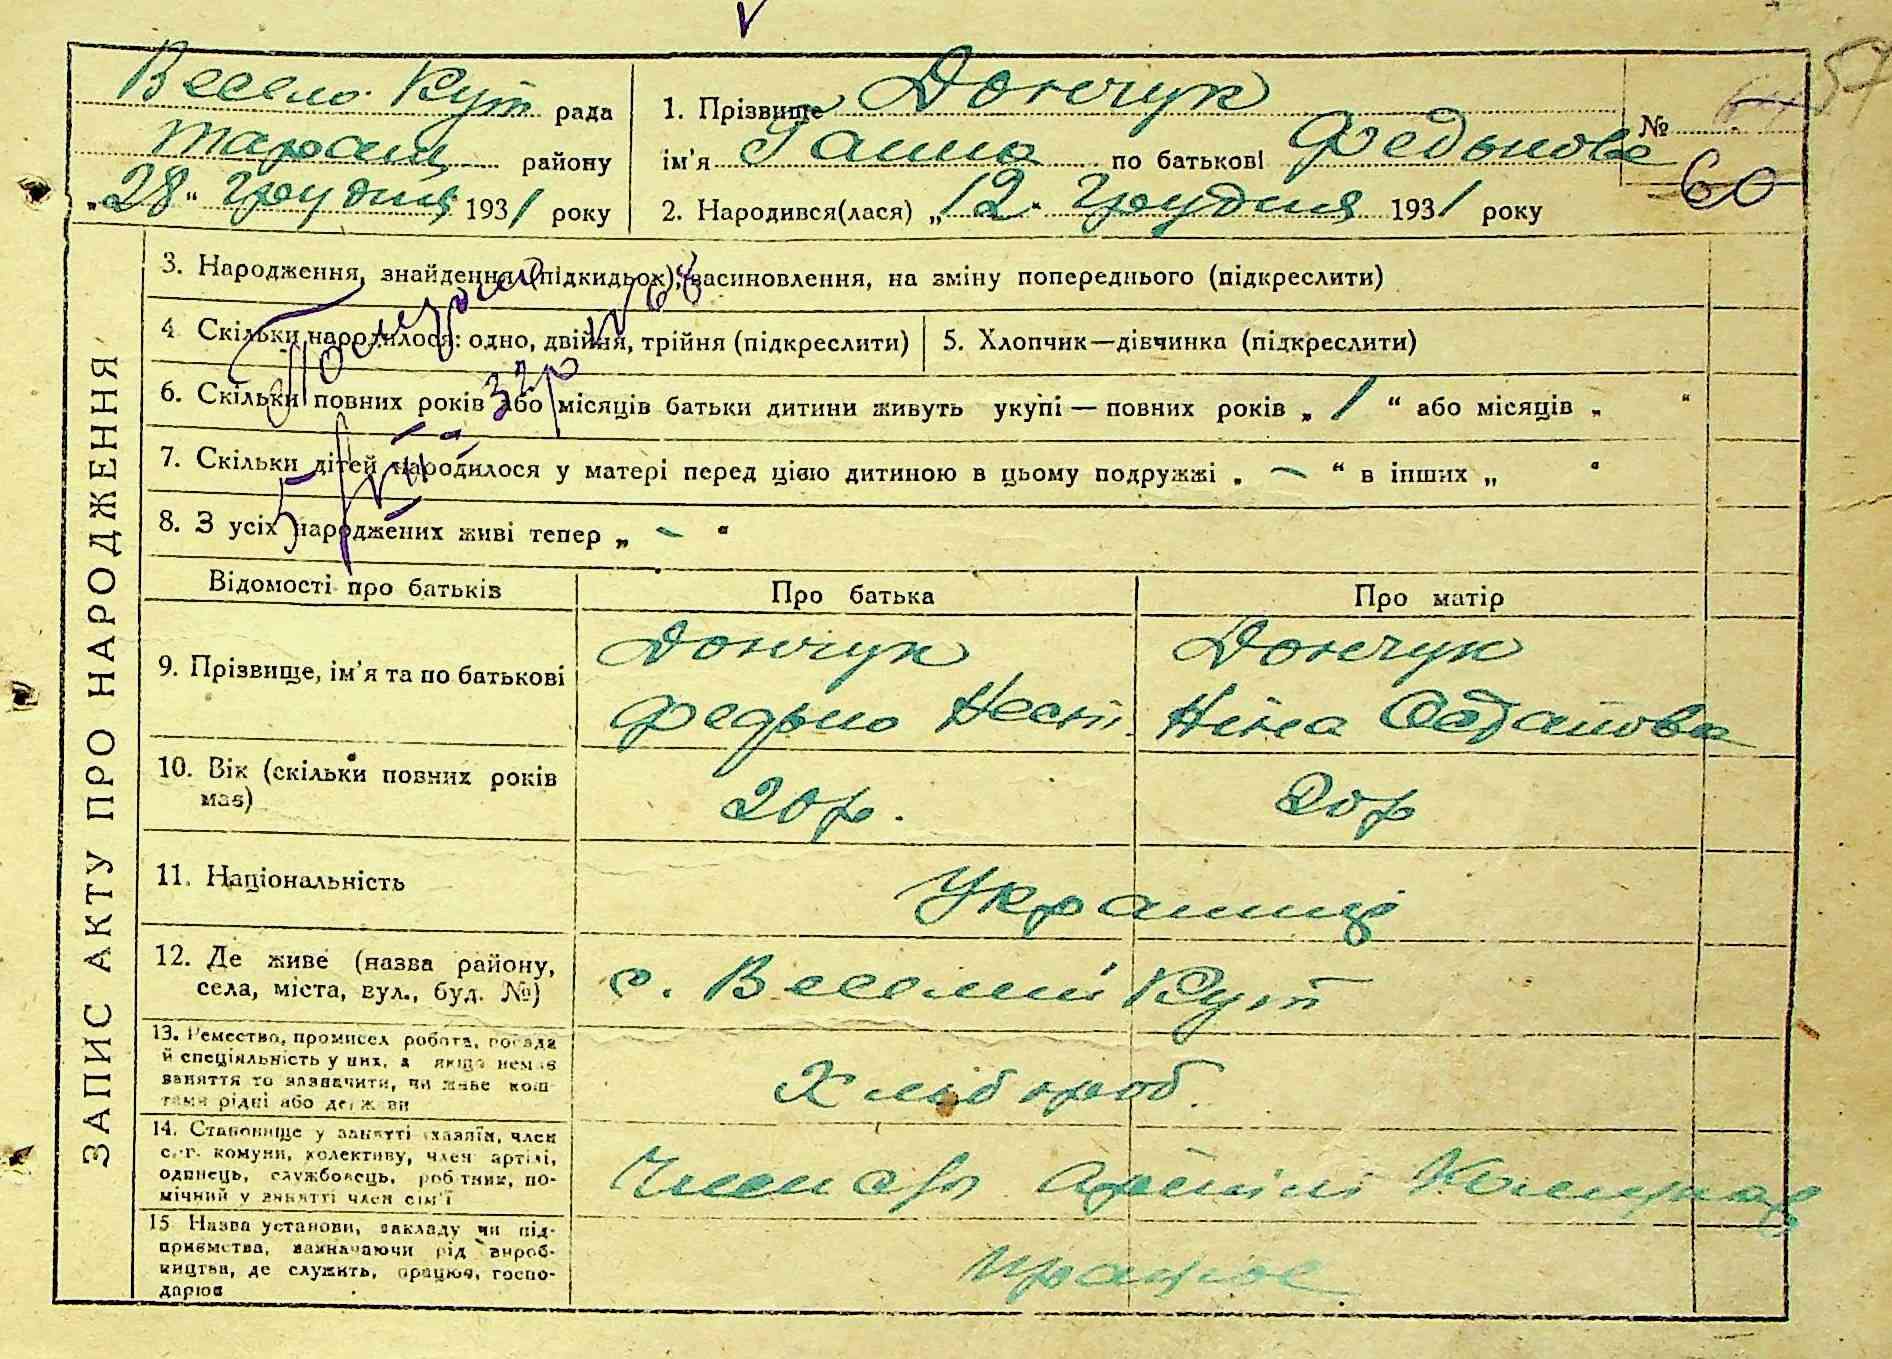 Весело Кут рада
Таращ району
„28“ Грудня 1931 року
1. Прізвище Дончук
ім'я Ганна по батькові Федьков
№ 60
2. Народився(лася) „12“ Грудня 1931 року
ЗАПИС АКТУ ПРО НАРОДЖЕННЯ
3. Народження, знайдення (підкидьок), засиновлення, на зміну попереднього (підкреслити)
4 Скільки народилося: одно, двійня, трійня (підкреслити)
5. Хлопчик—дівчинка (підкреслити)
6. Скільки повних років або місяців батьки дитини живуть укупі — повних років „ 1 “ або місяців „ “
7. Скільки дітей народилося у матері перед цією дитиною в цьому подружжі „ — “ в інших „ “
8. З усіх народжених живі тепер „ — “
Відомості про батьків Про батька Про матір
9. Прізвище, ім'я та по батькові
Дончук
Федько Нест.
Дончук
Ніна Остаповна
10. Вік (скільки повних років
має)
20 р.
20 р
11. Національність
Українці
12. Де живе (назва району,
села, міста, вул., буд. №)
с. Веселий Кут
13. Ремество, промисел робота, посада
й спеціяльність у них, а якщо немає
заняття то зазначити, чи живе кош-
тами рідні або держави
Хлібороб.
14. Становище у занятті (хазяїн, член
с.-г. комуни, колективу, член артілі,
одинець, службовець, робітник, по-
мічний у занятті член сім'ї
Член с/г Артілі
15 Назва установи, закладу чи під-
приємства, зазначаючи рід вироб-
ництва, де служить, працює, госпо-
дарює
працює